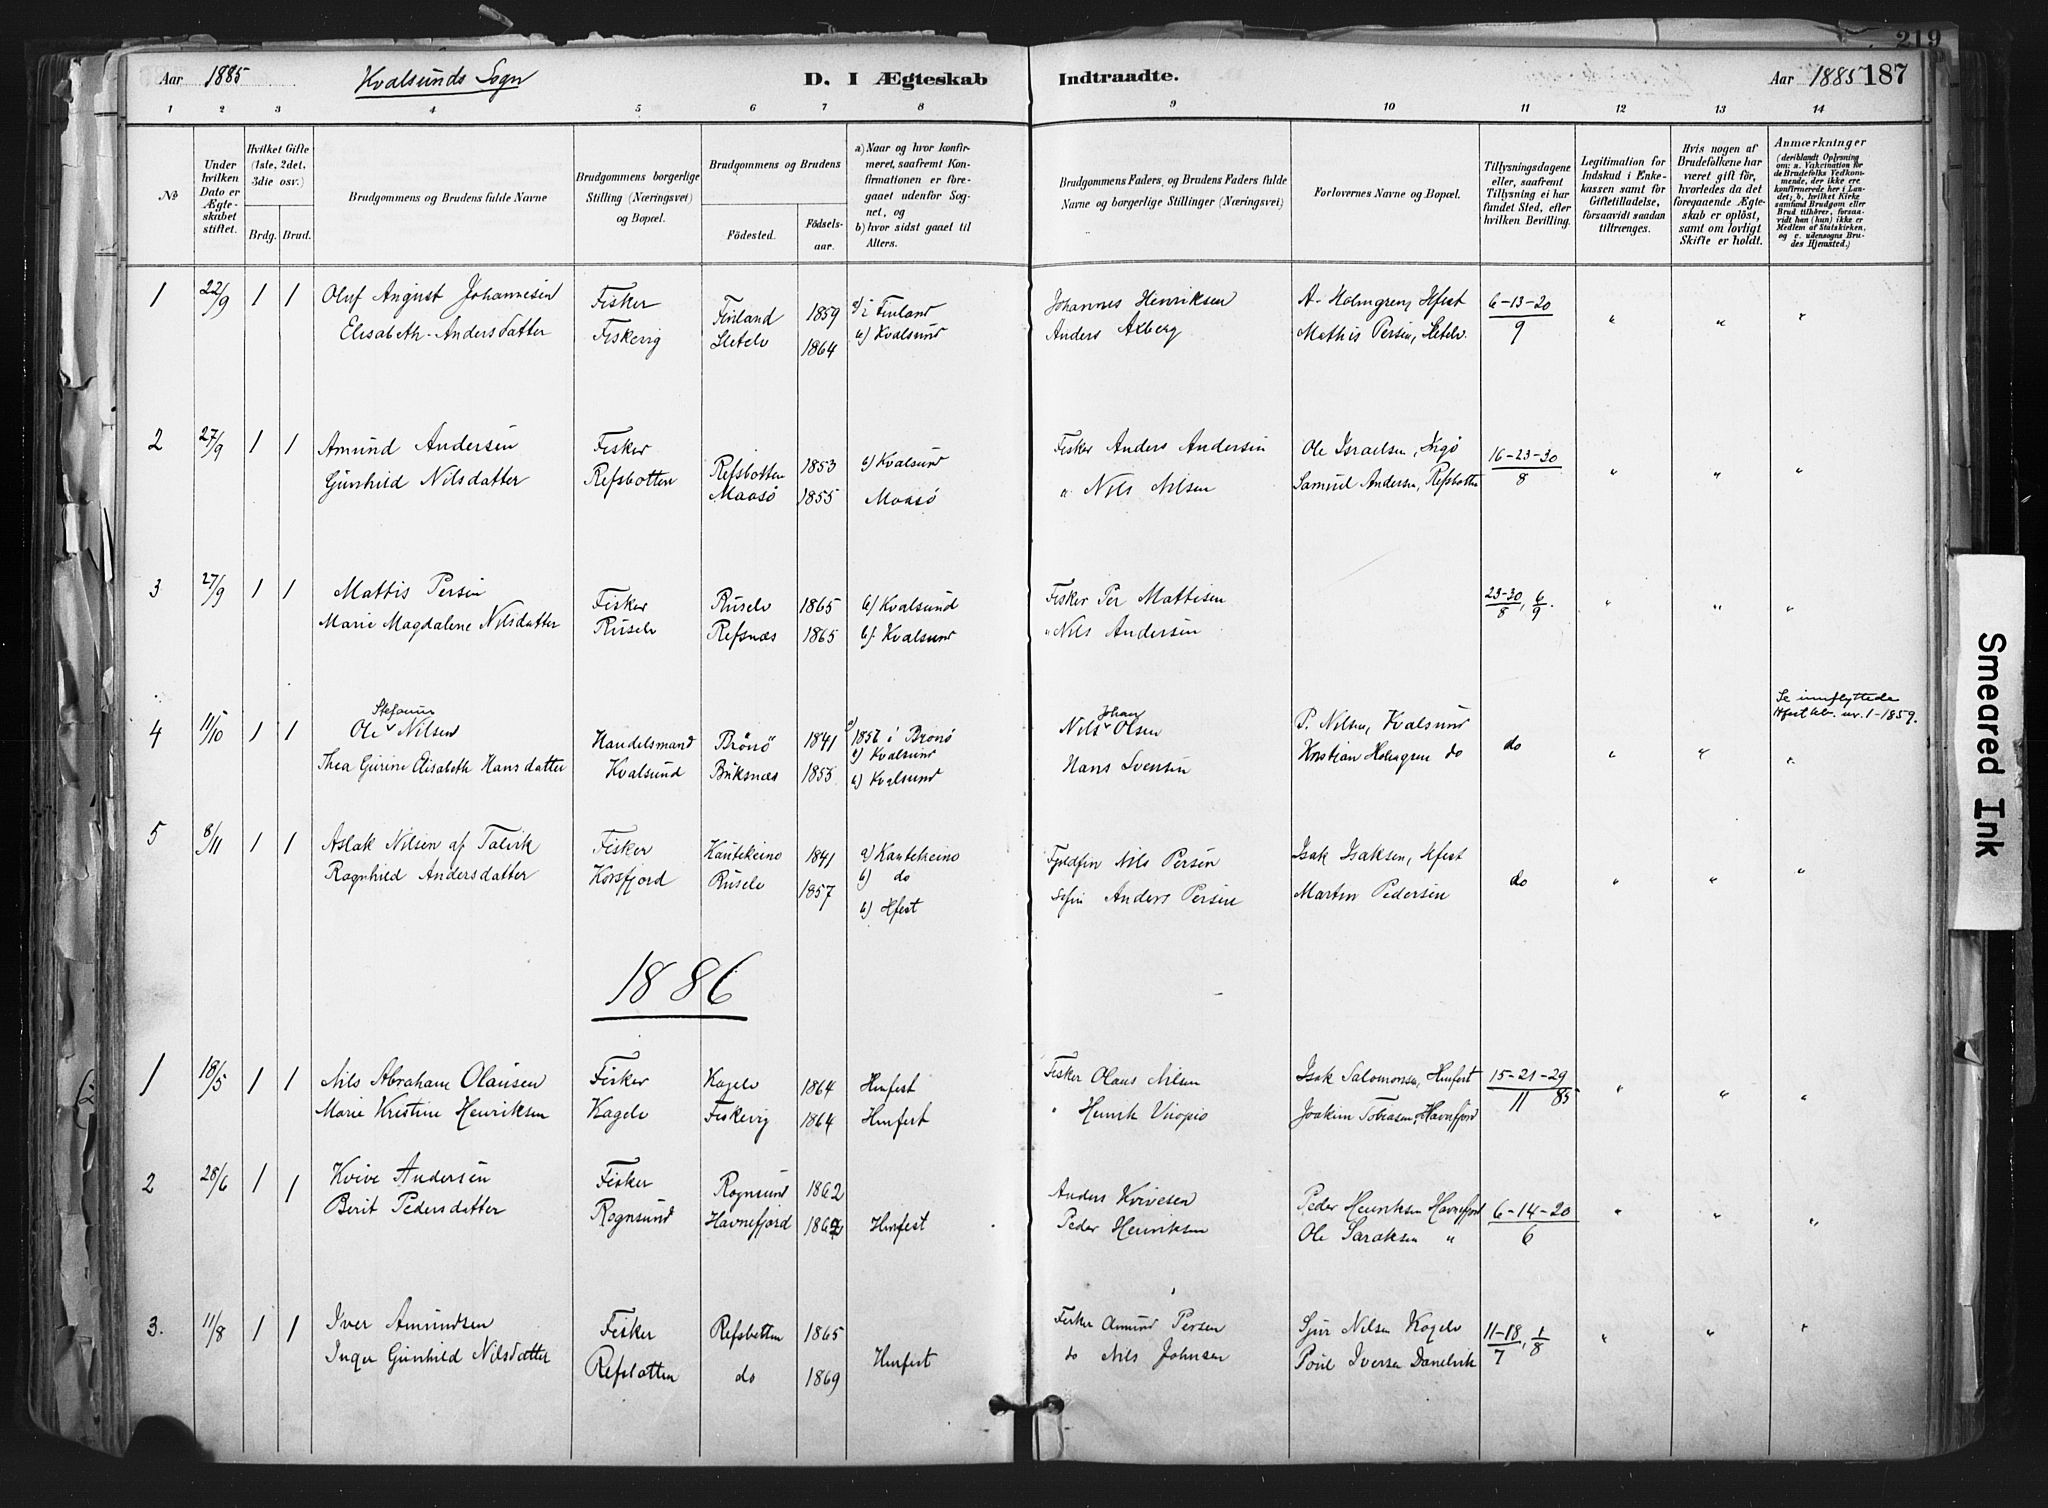 219
Aar 1885 Kvalsunds Sogn D. I Ægteskab Indtraadte. Aar 1885 187
1 2 3 4 5 6 7 8 9 10 11 12 13 14
№
Under hvilken Dato er Ægteskabet stiftet.
Hvilket Gifte (1ste, 2det, 3die osv.)
Brdg. Brud.
Brudgommens og Brudens fulde Navne
Brudgommens borgerlige Stilling (Næringsvei) og Bopæl.
Brudgommens og Brudens
Födested. Födselsaar.
a) Naar og hvor konfirmeret, saafremt Konfirmationen er foregaaet udenfor Sognet, og
b) hvor sidst gaaet til Alters.
Brudgommens Faders, og Brudens Faders fulde Navne og borgerlige Stillinger (Næringsvei)
Forlovernes Navne og Bopæl.
Tillysningsdagene eller, saafremt Tillysning ei har fundet Sted, efter hvilken Bevilling.
Legitimation for Indskud i Enkekassen samt for Giftetilladelse, forsaavidt saadan tiltrænges.
Hvis nogen af Brudefolkene har været gift för, hvorledes da det foregaaende Ægteskab er oplöst, samt om lovligt Skifte er holdt.
Anmærkninger (deriblandt Oplysning om: a. Vakcination for de Brudefolks Vedkommende, der ikke ere konfirmerede her i Landet; b. hvilket Kirkesamfund Brudgom eller Brud tilhörer, forsaavidt han (hun) ikke er Medlem af Statskirken, og c. udensogns Brudes Hjemsted.)
1 22/9 1 1 Oluf August Johannesen Fisker Finland 1859 a) i Finland Johannes Henriksen A. Holmgren, Hfest 6-13-20/9 " " "
Elisabeth Andersdatter Fiskevig Sletelv 1864 b) Kvalsund Anders Axberg Mathis Persen, Sletelv.
2 27/9 1 1 Amund Andersen Fisker Refsbotten 1853 b) Kvalsund Fisker Anders Andersen Ole Israelsen, Ingö 16-23-30/8 " " "
Gunhild Nilsdatter Refsbotten Maasö 1855 Maasö " Nils Nilsen Samuel Andersen, Refsbotten
3 27/9 1 1 Mattis Persen Fisker Ruselv 1865 b) Kvalsund Fisker Per Mattisen 23-30/8, 6/9. " " "
Marie Magdalene Nilsdatter Ruselv Refsnæs 1865 b) Kvalsund " Nils Andersen
Se innflyttede
Hfest lit. nr. 1-1859.
4 11/10 1 1 Ole Stefanus Nilsen Handelsmand Brönö 1841 a) 1857 i Brönö Nils Johan Olsen P. Nilsen, Kvalsund do " " "
b) Kvalsund
Thea Gurine Elisabeth Hansdatter Kvalsund Buksnæs 1855 b) Kvalsund Hans Svensen Kristian Holmgren do
5 8/11 1 1 Aslak Nilsen af Talvik Fisker Kautekeino 1841 a) Kautekeino Fjeldfin Nils Persen Isak Isaksen, Hfest do " " "
b) do
Ragnhild Andersdatter Korsfjord Ruselv 1857 b) Hfest Söfin Anders Persen Martin Pedersen
1886
1 18/5 1 1 Nils Abraham Olausen Fisker Kagelv 1864 Hmfest Fisker Olaus Nilsen Isak Salomonsen, Hmfest 15-21-29/11 85 " " "
Marie Kristine Henriksen Kagelv Fiskevig 1864 Hmfest " Henrik Viropio Joakim Tobiasen, Havnefjord
2 28/6 1 1 Kvive Andersen Fisker Rognsund 1862 Anders Kvivesen Peder Henriksen Havnefjord 6-14-20/6 " " "
Berit Pedersdatter Rognsund Havnefjord 1862 Hmfest Peder Henriksen Ole Saraksen "
3. 11/8 1 1 Iver Amundsen Fisker Refsbotten 1865 Fisker Amund Persen Sjur Nilsen Kogelv 11-18/7, 1/8 " " "
Inger Gunhild Nilsdatter Refsbotten do 1869 Hmfest do Nils Johnsen Poul Iversen Danelvik
Smeared Ink